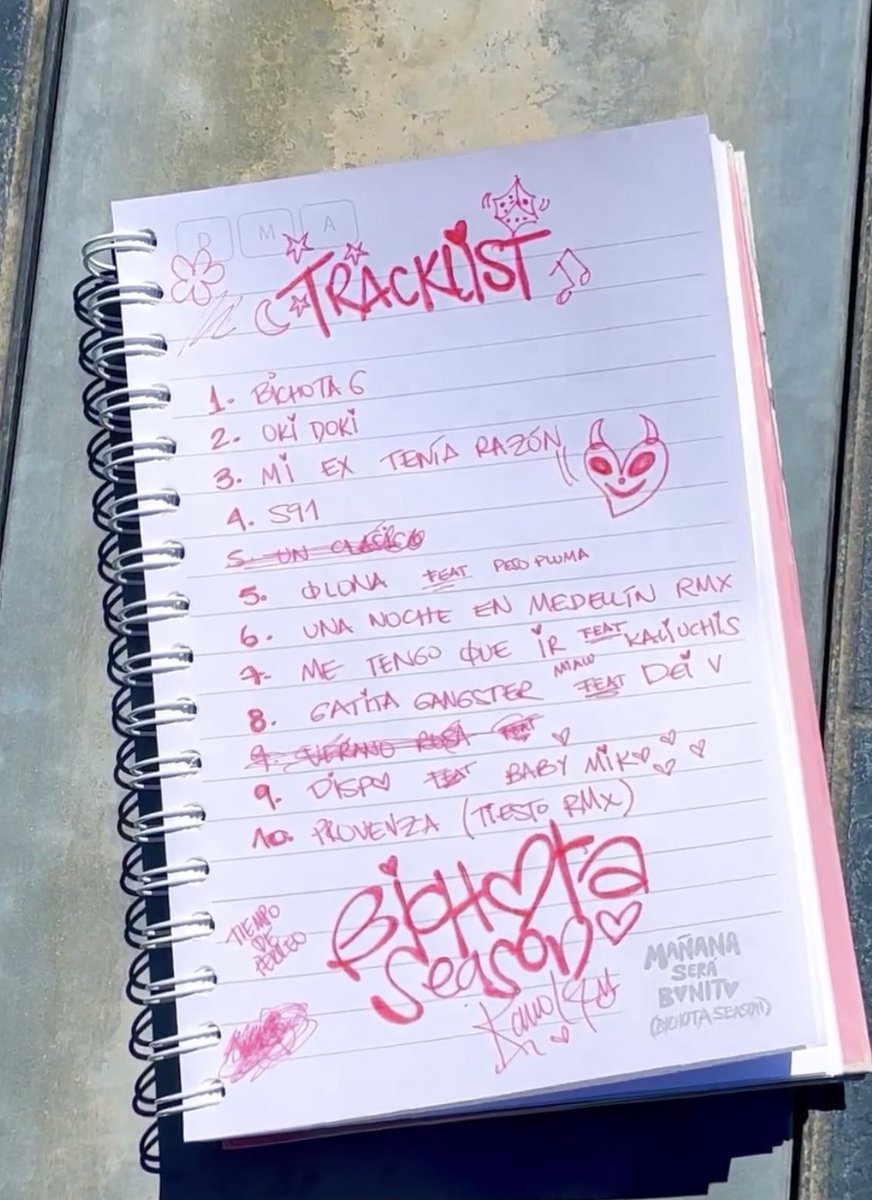 D M A
TRACKLIST
1. BICHOTA G
2. OKI DOKI
3. MI EX TENÍA RAZÓN
4. S91
5. UN CLÁSICO
5. QLONA FEAT PESO PLUMA
6. UNA NOCHE EN MEDELLÍN RMX
7. ME TENGO QUE IR FEAT KALIUCHIS
8. GATITA GANGSTER MIAU FEAT DEI V
9. VERANO ROSA FEAT
9. DISPO FEAT BABY MIKO
10. PROVENZA (TIESTO RMX)
BICHOTA
SEASON
TIEMPO
DE
PERREO
Karol G
MAÑANA
SERÁ
BONITO
(BICHOTA SEASON)